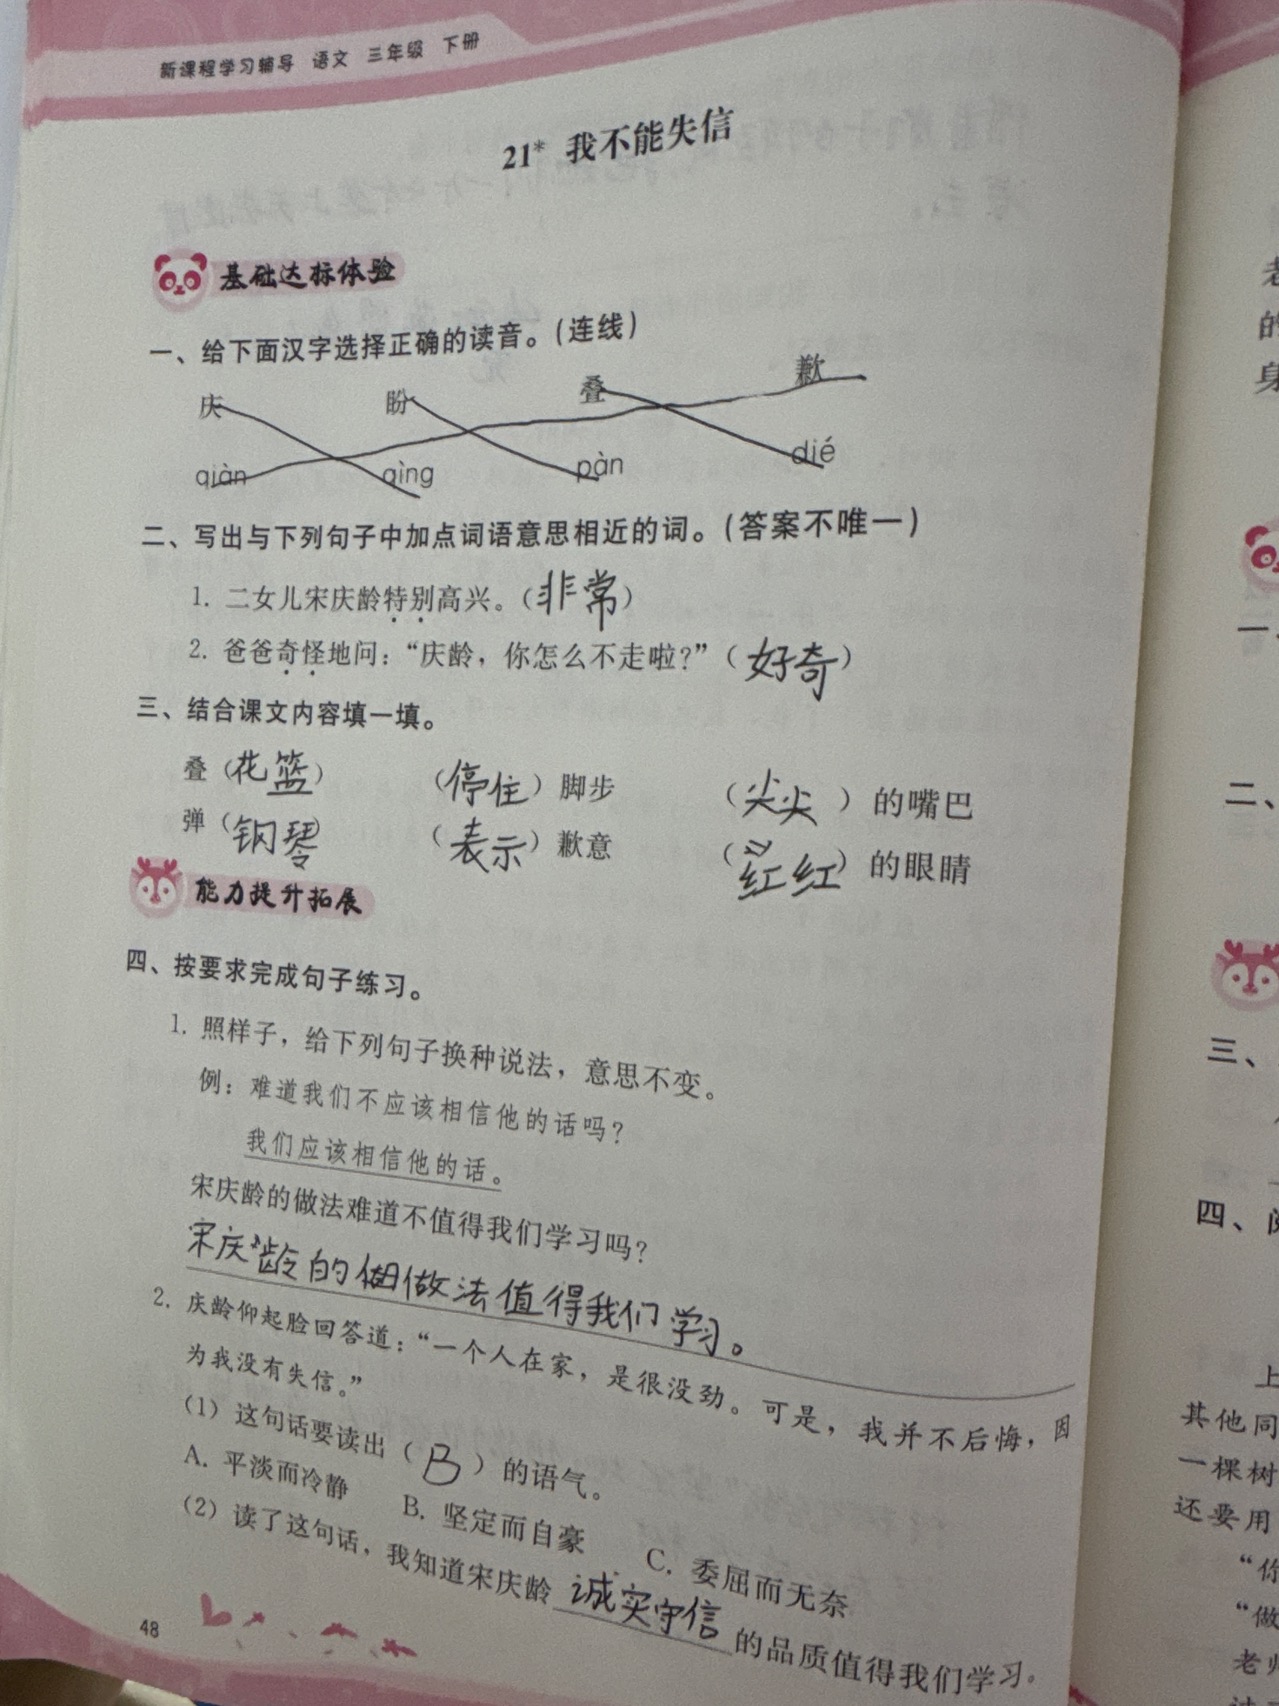 新课程学习辅导 语文 三年级 下册
21* 我不能失信
基础达标体验
一、给下面汉字选择正确的读音。(连线)
庆 盼 叠 歉
qiàn qìng pàn dié
二、写出与下列句子中加点词语意思相近的词。(答案不唯一)
1. 二女儿宋庆龄特别高兴。(非常)
2. 爸爸奇怪地问:“庆龄,你怎么不走啦?”(好奇)
三、结合课文内容填一填。
叠(花篮) (停住)脚步 (尖尖)的嘴巴
弹(钢琴) (表示)歉意 (红红)的眼睛
能力提升拓展
四、按要求完成句子练习。
1. 照样子,给下列句子换种说法,意思不变。
例:难道我们不应该相信他的话吗?
我们应该相信他的话。
宋庆龄的做法难道不值得我们学习吗?
宋庆龄的做法值得我们学习。
2. 庆龄仰起脸回答道:“一个人在家,是很没劲。可是,我并不后悔,因
为我没有失信。”
(1)这句话要读出(B)的语气。
A. 平淡而冷静 B. 坚定而自豪 C. 委屈而无奈
(2)读了这句话,我知道宋庆龄诚实守信的品质值得我们学习。
48
身
一、
二、
三、
四、
上
其他同
一棵树
还要用
“你
“做
老师